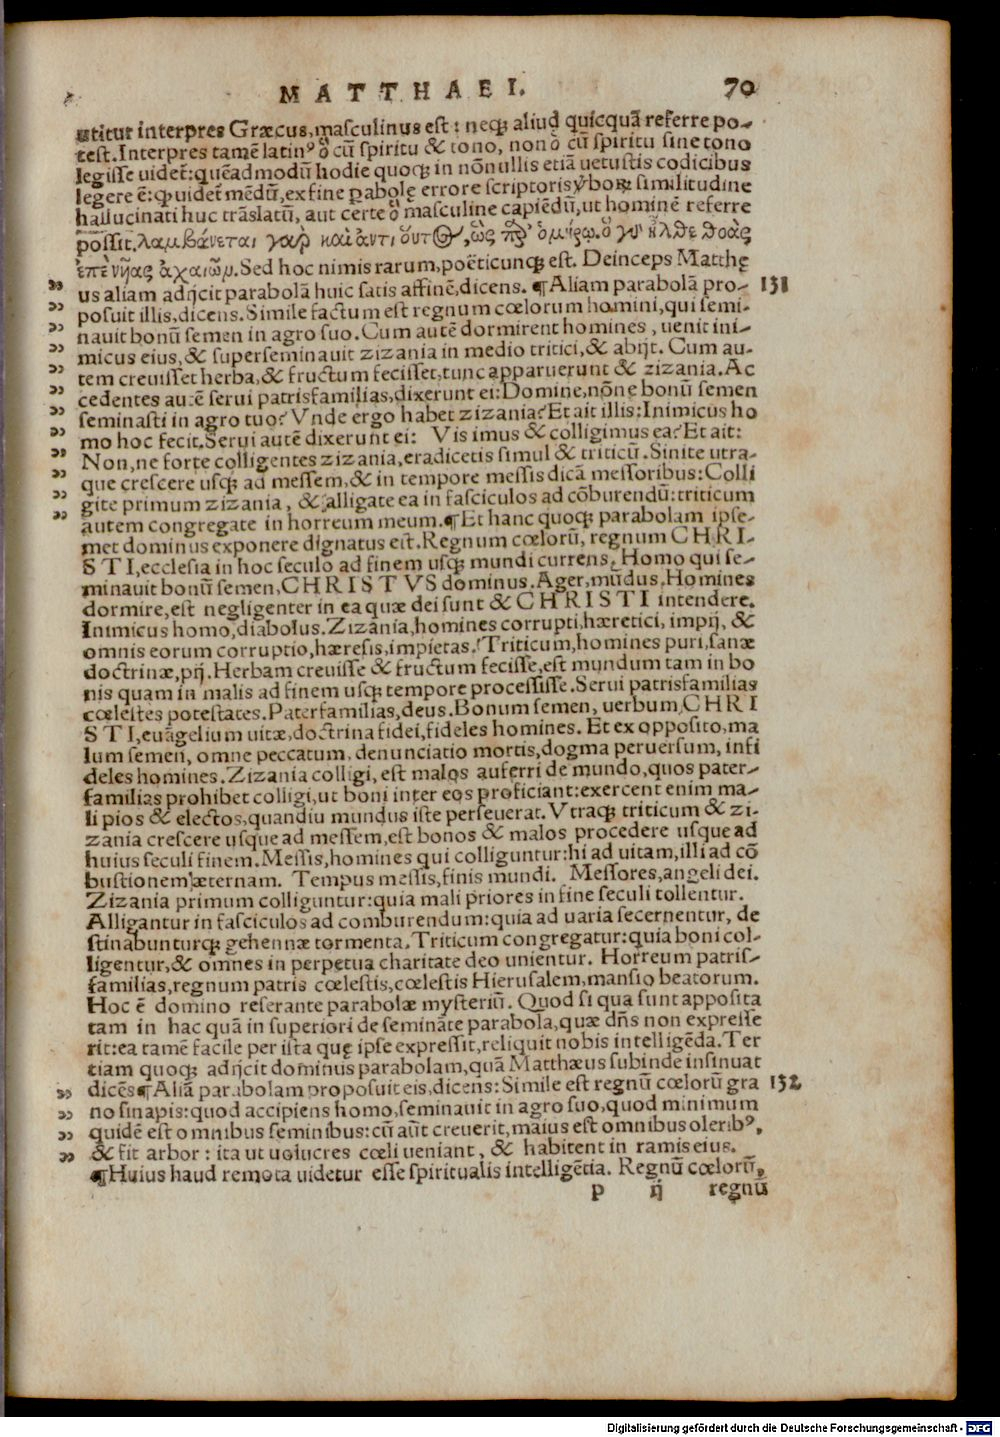 MATTHAEI. 70
utitur interpres Græcus, masculinus est: neqꝫ aliud quicquã referre po-
test. Interpres tamẽ latinꝰ ὃ cũ spiritu & tono, non ὁ cũ spiritu sine tono
legisse uidet̃: quẽadmodũ hodie quoqꝫ in nõnullis etiã uetustis codicibus
legere ẽ: qd̕ uidet̃ mẽdũ, ex fine ꝑabolę errore scriptoris, yboꝝ similitudine
hallucinati huc trãslatũ, aut certe ὃ masculine capiẽdũ, ut hominẽ referre
possit. λαμβάνεται γὰρ καὶ ἀντὶ οὗτος, ὡς παρ' ὁμήρῳ. ὃ γὰρ ἦλθε θοὰς
ἐπὶ νῆας ἀχαιῶν. Sed hoc nimis rarum, poëticunqꝫ est. Deinceps Matthę
us aliam adijcit parabolã huic satis affinẽ, dicens. ¶ Aliam parabolã pro- 131
posuit illis, dicens. Simile factum est regnum cœlorum homini, qui semi-
nauit bonũ semen in agro suo. Cum autẽ dormirent homines, uenit ini-
micus eius, & superseminauit zizania in medio tritici, & abijt. Cum au-
tem creuisset herba, & fructum fecisset, tunc apparuerunt & zizania. Ac
cedentes autẽ serui patrisfamilias, dixerunt ei: Domine, nõne bonũ semen
seminasti in agro tuo? Vnde ergo habet zizania? Et ait illis: Inimicus ho
mo hoc fecit. Serui autẽ dixerunt ei: Vis imus & colligimus ea? Et ait:
Non, ne forte colligentes zizania, eradicetis simul & triticũ. Sinite utra-
que crescere usqꝫ ad messem, & in tempore messis dicã messoribus: Colli
gite primum zizania, & alligate ea in fasciculos ad cõburendũ: triticum
autem congregate in horreum meum. ¶ Et hanc quoqꝫ parabolam ipse-
met dominus exponere dignatus est. Regnum cœlorũ, regnum CHRI-
STI, ecclesia in hoc seculo ad finem usqꝫ mundi currens. Homo qui se-
minauit bonũ semen, CHRISTVS dominus. Ager, mũdus. Homines
dormire, est negligenter in ea quæ dei sunt & CHRISTI intendere.
Inimicus homo, diabolus. Zizania, homines corrupti, hæretici, impij, &
omnis eorum corruptio, hæresis, impietas. Triticum, homines puri, sanæ
doctrinæ, pij. Herbam creuisse & fructum fecisse, est mundum tam in bo
nis quam in malis ad finem usqꝫ tempore processisse. Serui patrisfamilias
cœlestes potestates. Paterfamilias, deus. Bonum semen, uerbum CHRI
STI, euãgelium uitæ, doctrina fidei, fideles homines. Et ex opposito, ma
lum semen, omne peccatum, denunciatio mortis, dogma peruersum, infi
deles homines. Zizania colligi, est malos auferri de mundo, quos pater-
familias prohibet colligi, ut boni inter eos proficiant: exercent enim ma-
li pios & electos, quandiu mundus iste perseuerat. Vtraqꝫ triticum & zi-
zania crescere usque ad messem, est bonos & malos procedere usque ad
huius seculi finem. Messis, homines qui colliguntur: hi ad uitam, illi ad cõ
bustionem æternam. Tempus messis, finis mundi. Messores, angeli dei.
Zizania primum colliguntur: quia mali priores in fine seculi tollentur.
Alligantur in fasciculos ad comburendum: quia ad uaria secernentur, de
stinabunturqꝫ gehennæ tormenta. Triticum congregatur: quia boni col-
ligentur, & omnes in perpetua charitate deo unientur. Horreum patris-
familias, regnum patris cœlestis, cœlestis Hierusalem, mansio beatorum.
Hoc ẽ domino reserante parabolæ mysteriũ. Quod si qua sunt apposita
tam in hac quã in superiori de seminãte parabola, quæ dñs non expresse
rit: ea tamẽ facile per ista quę ipse expressit, reliquit nobis intelligẽda. Ter
tiam quoqꝫ adijcit dominus parabolam, quã Matthæus subinde insinuat
dicẽs ¶ Aliã parabolam proposuit eis, dicens: Simile est regnũ cœlorũ gra 132
no sinapis: quod accipiens homo, seminauit in agro suo, quod minimum
quidẽ est omnibus seminibus: cũ aũt creuerit, maius est omnibus oleribꝰ,
& fit arbor: ita ut uolucres cœli ueniant, & habitent in ramis eius.
¶ Huius haud remota uidetur esse spiritualis intelligẽtia. Regnũ cœlorũ,
p ij regnũ
Digitalisierung gefördert durch die Deutsche Forschungsgemeinschaft - DFG